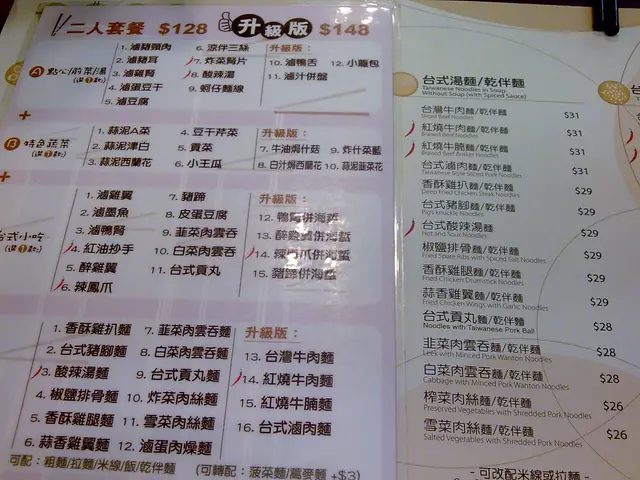 二人套餐 $128 升級版 $148
A 點心/前菜/湯
1. 滷豬頸肉
2. 滷豬耳
3. 滷雞腎
4. 滷蛋豆干
5. 滷豆腐
6. 涼伴三絲
7. 炸雲腎片
8. 酸辣湯
9. 蚵仔麵線
升級版：
10. 滷鴨舌
11. 滷汁併盤
12. 小龍包
B 特色蔬菜
1. 蒜泥A菜
2. 蒜泥津白
3. 蒜泥西蘭花
4. 豆干芹菜
5. 貢菜
6. 小王瓜
升級版：
7. 牛油焗什菇
8. 白汁焗西蘭花
9. 炸什菜藍
10. 蒜泥韮菜花
台式小吃
1. 滷雞翼
2. 滷墨魚
3. 滷鴨腎
4. 紅油抄手
5. 醉雞翼
6. 辣鳳爪
7. 豬蹄
8. 皮蛋豆腐
9. 韮菜肉雲吞
10. 白菜肉雲吞
11. 台式貢丸
升級版：
12. 鴨腎併海蜇
13. 醉雞翼併海蜇
14. 辣鳳爪併海蜇
15. 豬蹄併海蜇
1. 香酥雞扒麵
2. 台式豬腳麵
3. 酸辣湯麵
4. 椒鹽排骨麵
5. 香酥雞腿麵
6. 蒜香雞翼麵
7. 韮菜肉雲吞麵
8. 白菜肉雲吞麵
9. 台式貢丸麵
10. 炸菜肉絲麵
11. 雪菜肉絲麵
12. 滷蛋肉燥麵
升級版：
13. 台灣牛肉麵
14. 紅燒牛肉麵
15. 紅燒牛腩麵
16. 台式滷肉麵
可配：粗麵/拉麵/米線/飯/乾伴麵 (可轉配：菠菜麵/蕎麥麵 +$3)
台式湯麵/乾伴麵
Taiwanese Noodles in Soup
Without Soup (with Spiced Sauce)
台灣牛肉麵/乾伴麵 $31
Sliced Beef Noodles
紅燒牛肉麵/乾伴麵 $31
Braised Beef Noodles
紅燒牛腩麵/乾伴麵 $31
Braised Beef Brisket Noodles
台式滷肉麵/乾伴麵 $31
Taiwanese Style Sliced Pork Noodles
香酥雞扒麵/乾伴麵 $29
Deep Fried Chicken Steak Noodles
台式豬腳麵/乾伴麵 $29
Pig's Knuckle Noodles
台式酸辣湯麵 $29
Hot and Sour Noodles
椒鹽排骨麵/乾伴麵 $29
Fried Spare Ribs with Spiced Salt Noodles
香酥雞腿麵/乾伴麵 $29
Fried Chicken Drumstick Noodles
蒜香雞翼麵/乾伴麵 $29
Fried Chicken Wings with Garlic Noodles
台式貢丸麵/乾伴麵 $28
Noodles with Taiwanese Pork Ball
韮菜肉雲吞麵/乾伴麵 $28
Leek with Minced Pork Wanton Noodles
白菜肉雲吞麵/乾伴麵 $28
Cabbage with Minced Pork Wanton Noodles
榨菜肉絲麵/乾伴麵 $26
Preserved Vegetables with Shredded Pork Noodles
雪菜肉絲麵/乾伴麵 $26
Salted Vegetables with Shredded Pork Noodles
- 可改配米線或拉麵 -